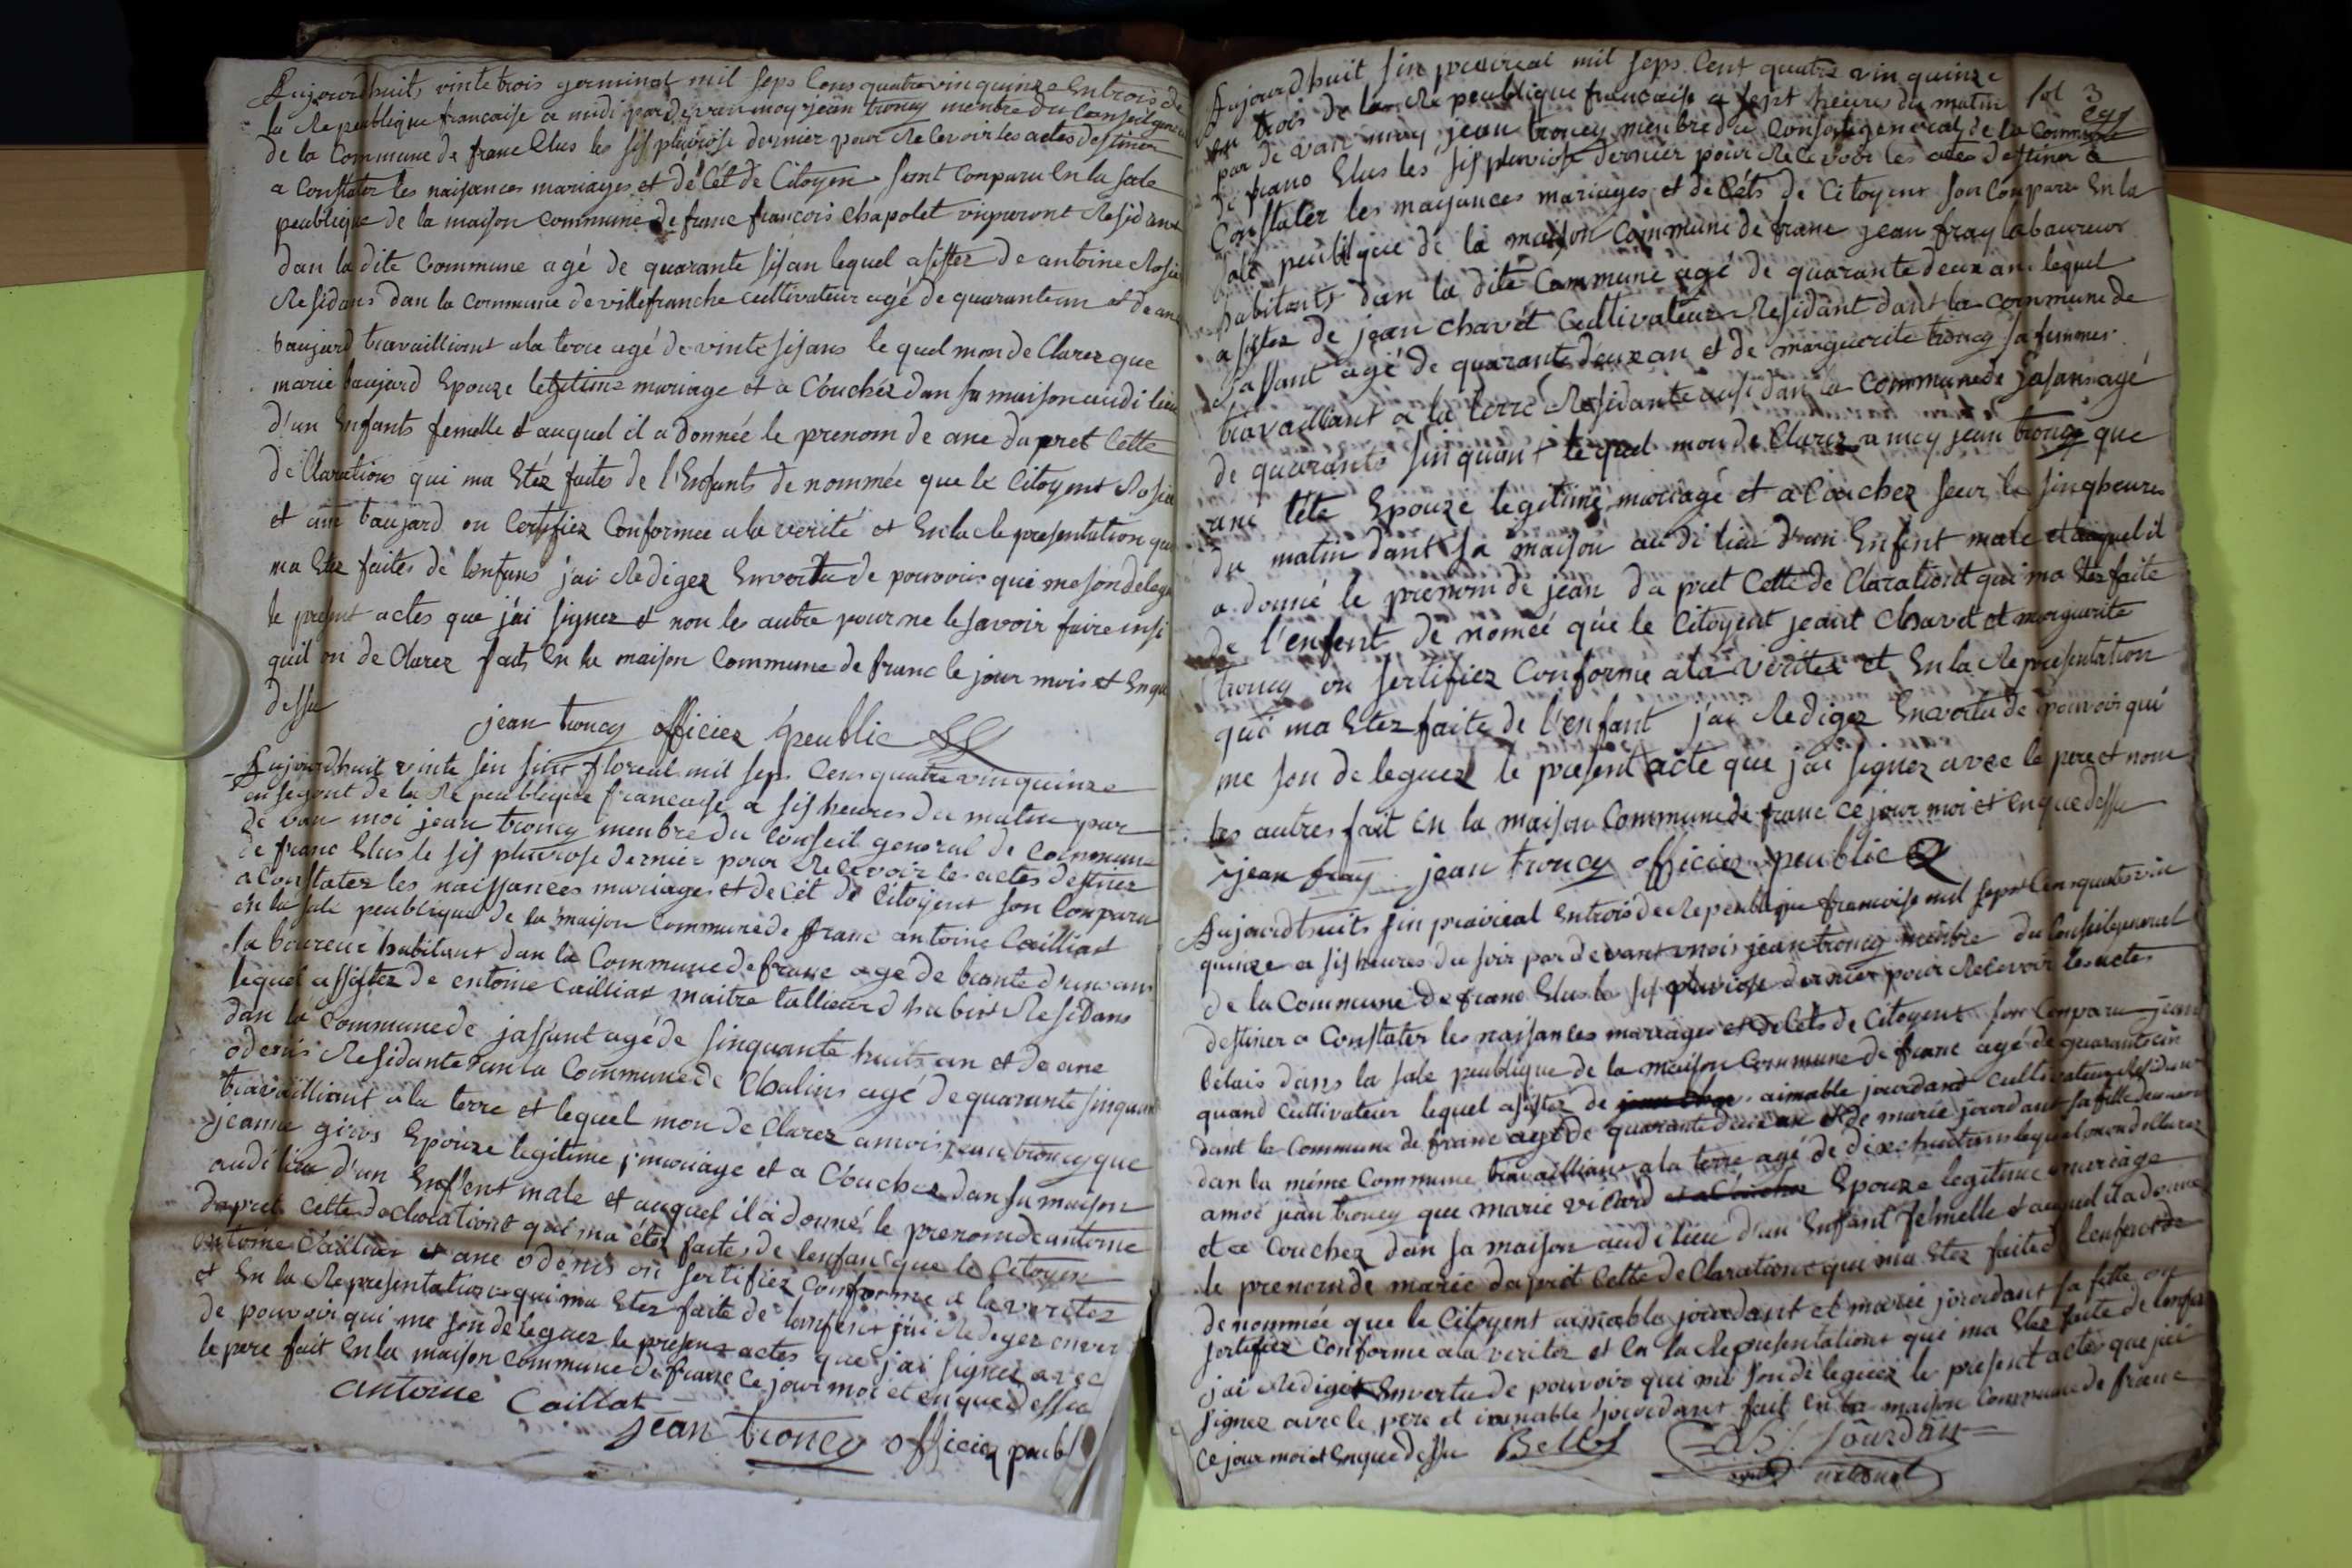 Aujourdhuits vinte trois germinal mil seps Cens quatre vin quinze En trois de
la Republique francaise a midi par de van moy jean troncy menbre du Conseil general
de la Commune de franc Elus les sis pluviose dernier pour Recevoir les actes destiner
a Constater les naisances mariages et déCét de Citoyen sont Conparu En la sale
peublique de la maison Commune de franc francois Chapolet vigneront Residant
dan la dite Commune agé de quarante sis an lequel asistez de antoine
Residans dan la Commune de villefranche Cultivateur agé de quarante un et de ane
baujard travailliant a la terre agé de vinte sis ans le quel mon de Clarez que
marie baujard Epouze legitime mariage et a Couchéz dan sa maison audi lieu
d'un Enfants femelle et auquel il a donnée le prenom de ane dapret Cette
de Clarations qui ma Etéz faites de l'Enfants de nommée que le Citoyent
et ane baujard on Certifiez Conformee a la verité et En la Representation qui
ma Etez faites de lenfans j'ai Rediger Envertu de pouvoir qui me son delege
le present actes que j'ai signez et non les autre pour ne le savoir faire insi
quil on de Clarez fait En la maison Commune de franc le jour mois et En que
dessu
jean troncy officiez peublic
Aujourdhuit vinte sin floreal mil seps Cens quatre vin quinze
en segont de la Republique francaise a sis heures du matin par
de van moi jean troncy menbre du Conseil general de Commune
de franc Elus le sis pluviose dernier pour Recevoir les actes destinez
a Constater les naissances mariages et deCét de Citoyent son Conparu
en la sale peublique de la maison Commune de franc antoine Cailliat
laboureur habitant dan la Commune de franc agé de trante deux ans
lequel assistez de entoine Cailliat maitre tallieur d habit Residans
dan la Commune de jassant agé de sinquante huit an et de ane
odenis Residante dan la Commune de Chalins agé de quarante sinquan
travailliant a la terre et lequel mon de Clarez a moi jean troncy que
jeanne Epouze legitime mariage et a Couchez dan sa maison
audi lieu d'un Enffent male et auquel il a donné le prenom de antoine
dapret Cette declarationt qui ma étéz faites de lenfan que le Citoyen
antoine Cailliat et ane odénis on sertifiez Conforme a la veritez
et En la Representation qui ma Etez faite de lenfent j'ai Rediger enver
de pouvoir qui me son deleguez le present actes que j'ai signez avec
le pere fait En la maison Commune de franc Ce jour moi et en que dessu
antoine Caillat
jean troncy officiez peubl
Aujourdhuit sin preireal mil seps Cent quatre vin quinze
en trois de la Republique francaise a sept heures du matin fol 3
par de van moy jean troncy menbre du Conseil general de la Commune
de franc Elus les sis pluviose dernier pour Recevoir les actes destiner a
Constater les naysances mariages et deCéts de Citoyent son Conparu En la
sale peublique de la maison Commune de franc jean fray laboureur
habitants dan la dite Commune agé de quarante deux an lequel
asistez de jean Chavét Cultivateur Residant dant la Commune de
jassant agé de quarante deux an et de marguerite troncy sa femme
travaillant a la terre Residante ausi dan la Commune de jasans agé
de quarante sinquant lequel mon de Clarez a moy jean troncy que
ane tété Epouze legitime mariagé et a Couchez seur le sinq heures
du matin dant sa maison au di lieu d'un Enfent male et auquel il
a donné le prenom de jean da pret Cette de Clarationt qui ma Etez faite
de l'enfent de nomeé que le Citoyent jeant Chavet et marguerite
troncy on sertifiez Conforme a la veritez et En la Representation
qui ma Etez faite de l'enfant j'ai Rediger Envertu de pouvoir qui
me son deleguez le present acte que jai signez avec le pere et nom
les autres fait En la maison Commune de franc ce jour moi et en que dessu
jean fray jean troncy officiez peublic
Aujourdhuits sin preireal En trois de Republique francoise mil sept Cens quatre vin
quinze a sis heures du soir par devant mois jean troncy menbre du Conseil general
de la Commune de franc Elus le sis pluviose dernier pour Recevoir les actes
destiner a Constater les naisances mariages et de Cets de Citoyent son Conparu jean
belais dans la sale peublique de la maison Commune de franc agé de quarante sin
quand Cultivateur lequel asistez de aimable jourdant Cultivateur Residant
dant la Commune de franc agé de quarante deux an et de marie jourdant sa fille demeuran
dan la méme Commune travailliant a la terre agé de dixe huit ans lequel mon de Clarez
a moi jean troncy que marie vicard Epouze legitime mariage
et a Couchez dan sa maison audi lieu d'un Enffant femelle et auquel il a donné
le prenom de marie dapret Cette de Clarationt qui ma Etez faite d lenfent de
denommée que le Citoyent aimable jourdant et marie jourdant sa fille on
sertifiez Conforme a la veritez et En la Representationt qui ma Etez faite de lenfen
j'ai Rediger Envertu de pouvoir qui me son deleguez le present actes que jai
signez avec le pere et aimable jourdant fait En la maison Commune de franc
Ce jour moi et En que dessu Jourdan